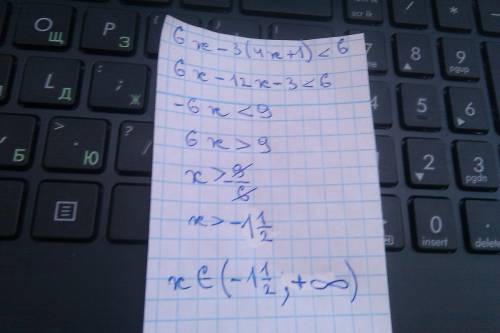 6x-3(4x+1)<6
6x-12x-3<6
-6x<9
6x>9
x>-9/6
x>-1 1/2
x∈(-1 1/2;+∞)
O Щ
P З
L Д
: ; Ж
Б
> . Ю
? /
7
8
9 pgup
6
2
3 pgdn
0 insert
. delete